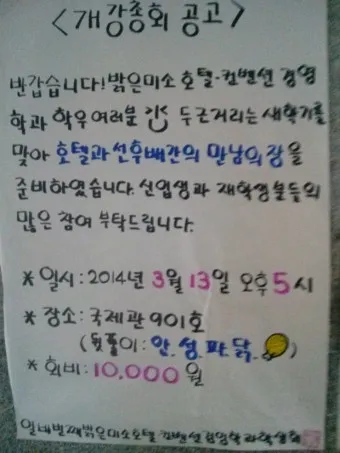 <개강총회 공고>
반갑습니다! 밝은미소 호텔·컨벤션 경영
학과 학우 여러분 두근거리는 새학기를
맞아 호텔과 선후배간의 만남의 장을
준비하였습니다. 신입생과 재학생분들의
많은 참여 부탁드립니다.
* 일시: 2014년 3월 13일 오후 5시
* 장소: 국제관 901호
(뒷풀이: 안.성.파.닭.)
* 회비: 10,000원
밝은미소호텔컨벤션경영학과학생회